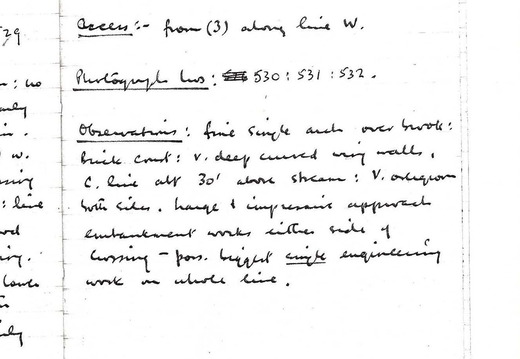 529
Access:- from (3) along line W.
Photograph Nos: 530 : 531 : 532.
Observations: fine single arch over brook:
brick const: v. deep curved wing walls.
C. line abt 30' above stream: V. overgrown
both sides. Large & impressive approach
embankment works either side of
crossing - poss. biggest single engineering
work on whole line.
: no
w.
: line